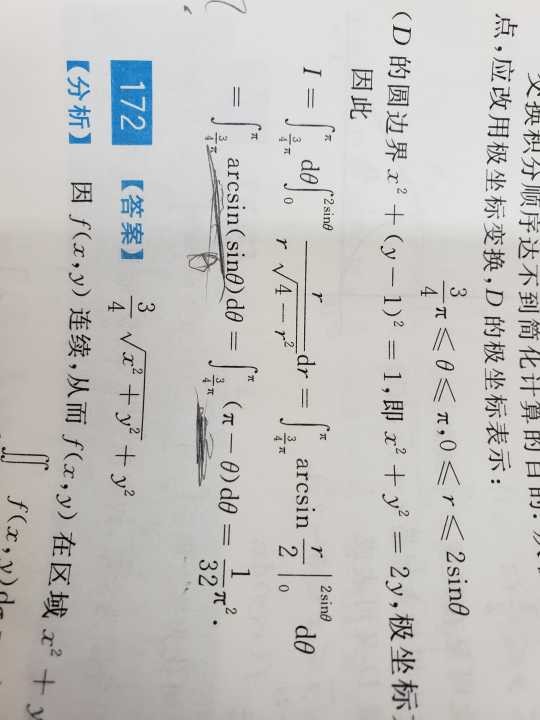 交换积分顺序达不到简化计算的目的.
点,应改用极坐标变换,D 的极坐标表示:
3/4 π ⩽ θ ⩽ π, 0 ⩽ r ⩽ 2sinθ
(D 的圆边界 x² + (y − 1)² = 1,即 x² + y² = 2y,极坐标
因此
I = ∫_{3/4 π}^{π} dθ ∫_0^{2sinθ} r/(r√(4 − r²)) dr = ∫_{3/4 π}^{π} arcsin r/2 |_0^{2sinθ} dθ
= ∫_{3/4 π}^{π} arcsin(sinθ)dθ = ∫_{3/4 π}^{π} (π − θ)dθ = 1/32 π².
172 【答案】 3/4 √(x² + y²) + y²
【分析】 因 f(x,y) 连续,从而 f(x,y) 在区域 x² + y
∬ f(x,y)dσ